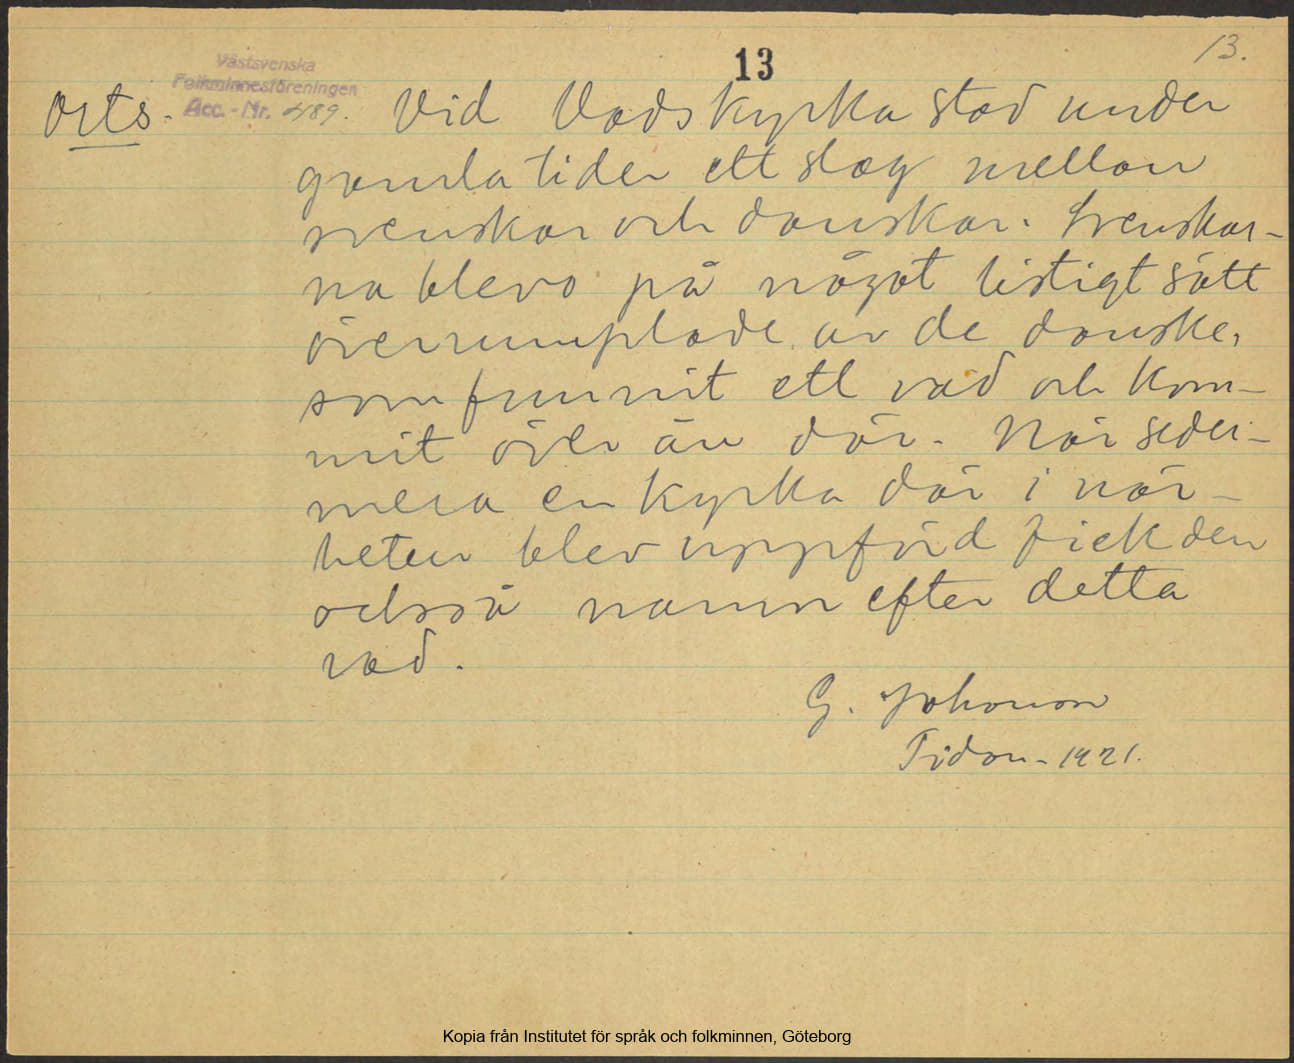 13.
13
Västsvenska
Folkminnesföreningen
Acc. - Nr. 2189.
Orts.
Vid Vads Kyrka stod under
gamla tider ett slag mellan
svenskar och danskar. Svenskar-
na blevo på något listigt sätt
överrumplade av de danske,
som funnit ett vad och kom-
mit över ån där. När seder-
mera en kyrka där i när-
heten blev uppförd fick den
också namn efter detta
vad.
G. Johonson
Tidan - 1921.
Kopia från Institutet för språk och folkminnen, Göteborg